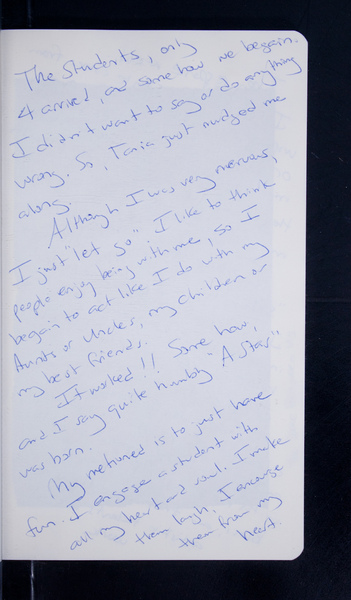 The Students, only
4 arrived, and some how we begain.
I didn't want to say or do anything
wrong. So, Tania just nudged me
along.
Although I was very nervous,
I just "let go". I like to think
people enjoy being with me, so I
begain to act like I do with my
Aunts or Uncles, my children or
my best friends.
It worked!! Some how,
and I say quite humbly "A Star"
was born.
My methored is to just have
fun. I engage a student with
all my heart and soul. I make
them laugh, I encourge
them from my
heart.